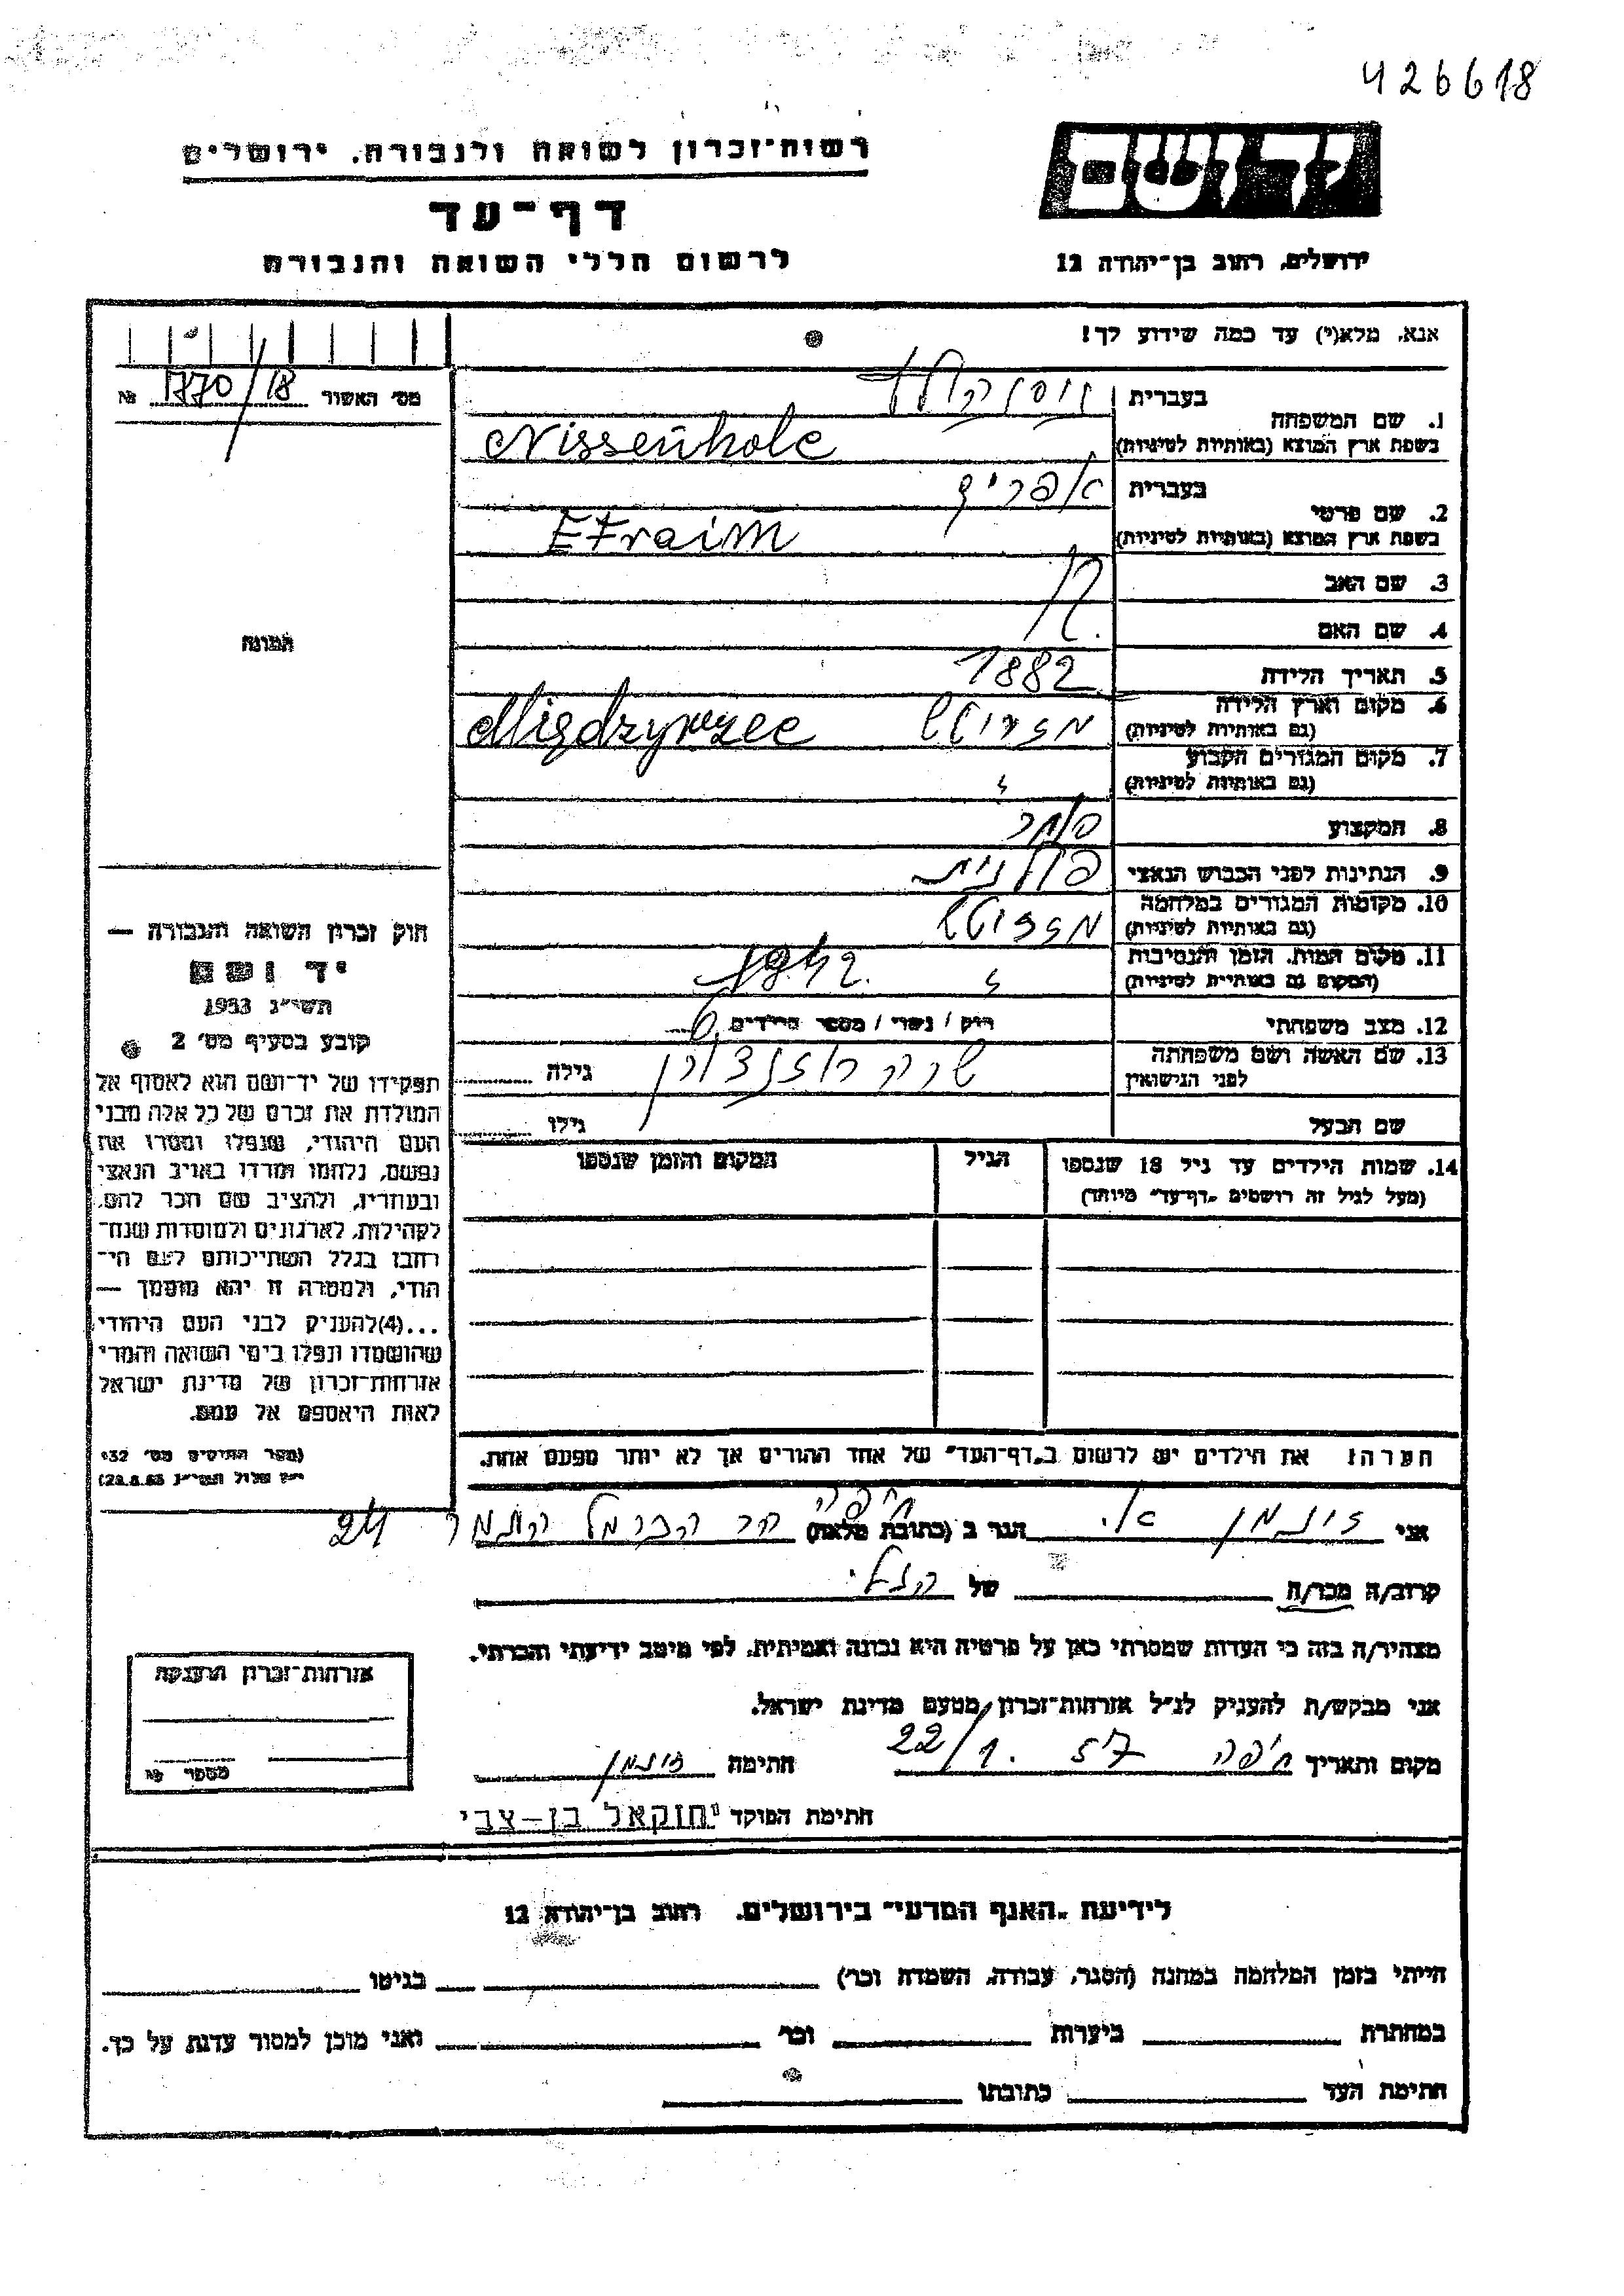 426618
רשות־זכרון לשואה ולגבורה, ירושלים
דף־עד
לרשום חללי השואה והגבורה
ירושלים, רחוב בן־יהודה 12
אנא, מלא(י) עד כמה שידוע לך!
מס׳ האשור 1770/18 №
1. שם המשפחה
בעברית
בשפת ארץ המוצא (באותיות לטיניות) Nissenholc
2. שם פרטי
בעברית אפרים
בשפת ארץ המוצא (באותיות לטיניות) Efraim
3. שם האב
4. שם האם
5. תאריך הלידה 1882
6. מקום וארץ הלידה
(גם באותיות לטיניות) Międzyrzec
7. מקום המגורים הקבוע
(גם באותיות לטיניות)
8. המקצוע סוחר
9. הנתינות לפני הכבוש הנאצי פולנית
10. מקומות המגורים במלחמה
(גם באותיות לטיניות)
11. מקום המות, הזמן והנסיבות
(המקום גם באותיות לטיניות) 1942.
12. מצב משפחתי רוק / נשוי / מספר הילדים 6
13. שם האשה ושם משפחתה
לפני הנישואין שרה גילה
שם הבעל גילו
14. שמות הילדים עד גיל 18 שנספו הגיל המקום והזמן שנספו
(מעל לגיל זה רושמים „דף־עד״ מיוחד)
תמונה
חוק זכרון השואה והגבורה —
יד ושם
תשי״ג 1953
קובע בסעיף מס׳ 2
תפקידו של יד־ושם הוא לאסוף אל
המולדת את זכרם של כל אלה מבני
העם היהודי, שנפלו ומסרו את
נפשם, נלחמו ומרדו באויב הנאצי
ובעוזריו, ולהציב שם וזכר להם,
לקהילות, לארגונים ולמוסדות שנח־
רבו בגלל השתייכותם לעם הי־
הודי, ולמטרה זו יהא מוסמך —
...(4) להעניק לבני העם היהודי
שהושמדו ונפלו בימי השואה והמרי
אזרחות־זכרון של מדינת ישראל
לאות היאספם אל עמם.
(ספר החוקים מס׳ 132
הערה! את הילדים יש לרשום ב„דף־העד״ של אחד ההורים אך לא יותר מפעם אחת.
אני הגר ב (כתובת מלאה) חיפה הר הכרמל התמר 24
קרוב/ה מכר/ה של
מצהיר/ה בזה כי העדות שמסרתי כאן על פרטיה היא נכונה ואמיתית, לפי מיטב ידיעתי והכרתי.
אני מבקש/ת להעניק לנ״ל אזרחות־זכרון מטעם מדינת ישראל.
מקום ותאריך חיפה 22/1. 57 חתימה
חתימת הפוקד יחזקאל בן-צבי
אזרחות־זכרון הוענקה
מספר №
לידיעת „האגף המדעי״ בירושלים, רחוב בן־יהודה 12
הייתי בזמן המלחמה במחנה (הסגר, עבודה, השמדה וכו׳) בגיטו
במחתרת ביערות וכו׳ ואני מוכן למסור עדות על כך.
חתימת העד כתובתו